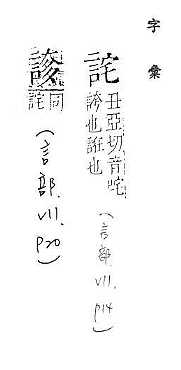 字彙
詫
丑亞切音咤
誇也誑也
(言部. VII. P14)
同
詫
(言部. VII. P20)